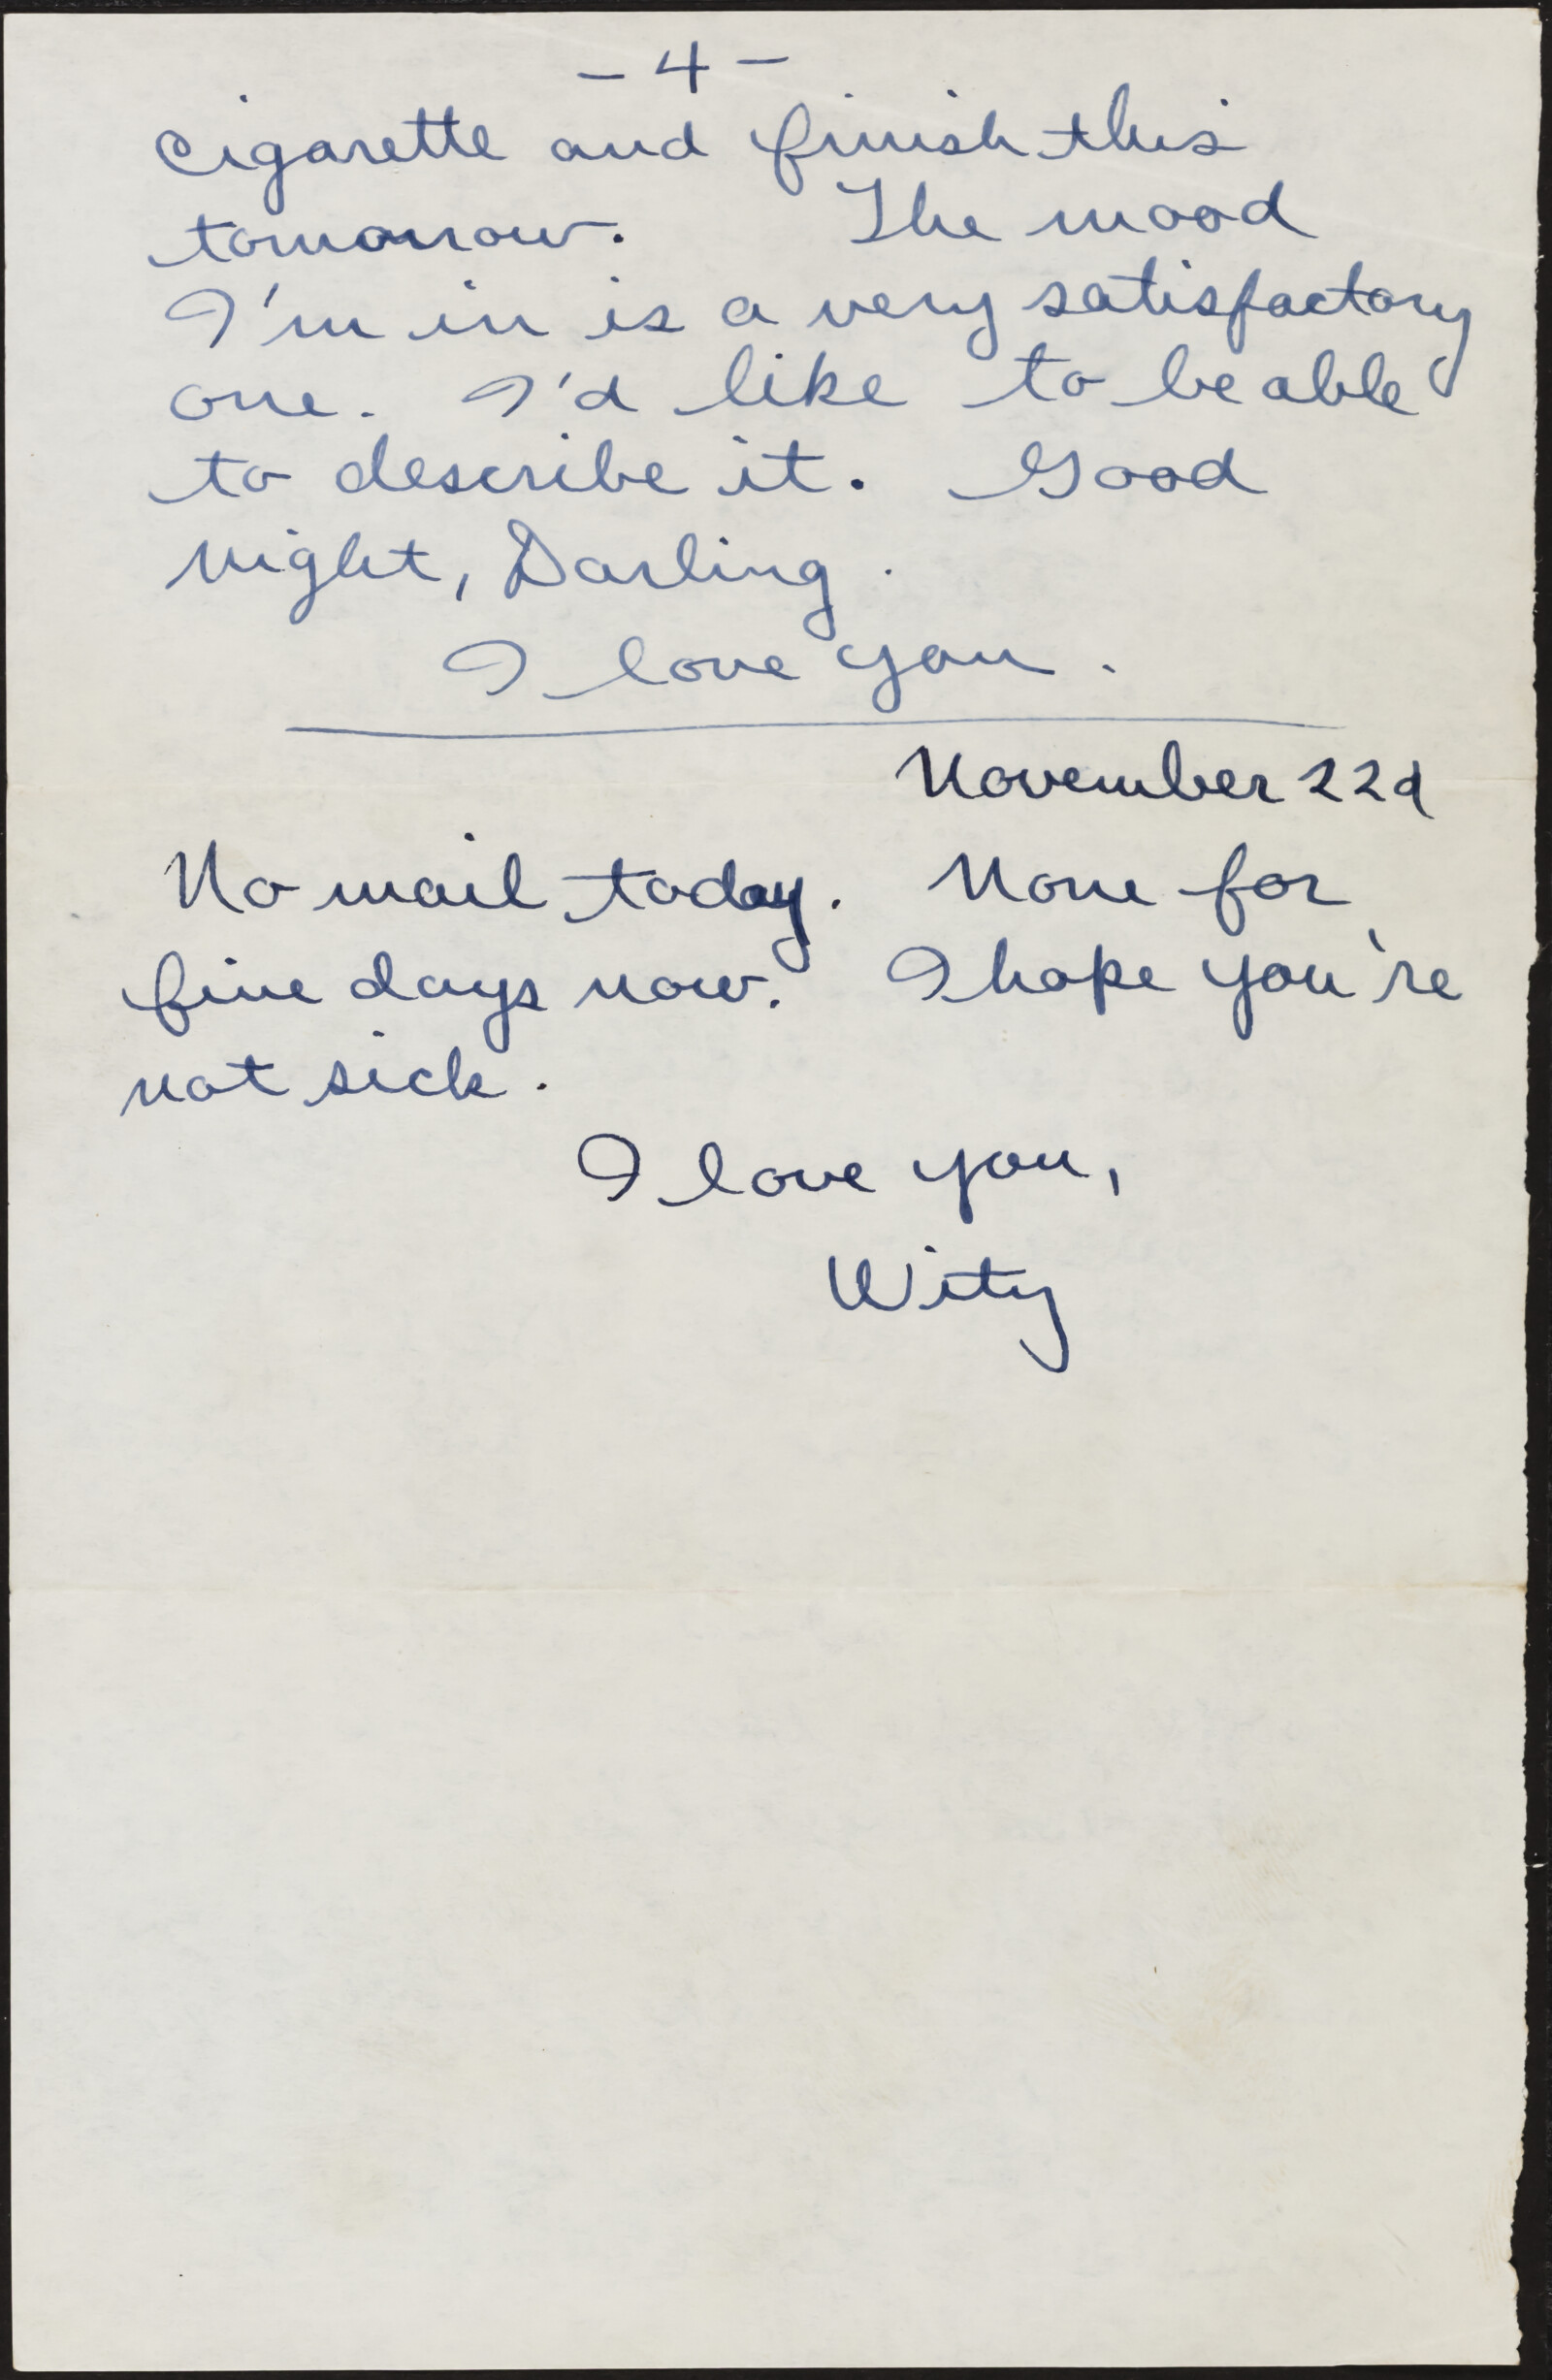 - 4 -
cigarette and finish this
tomorrow. The mood
I'm in is a very satisfactory
one. I'd like to be able
to describe it. Good
night, Darling.
I love you.
November 22d
No mail today. None for
five days now. I hope you're
not sick.
I love you,
Wity